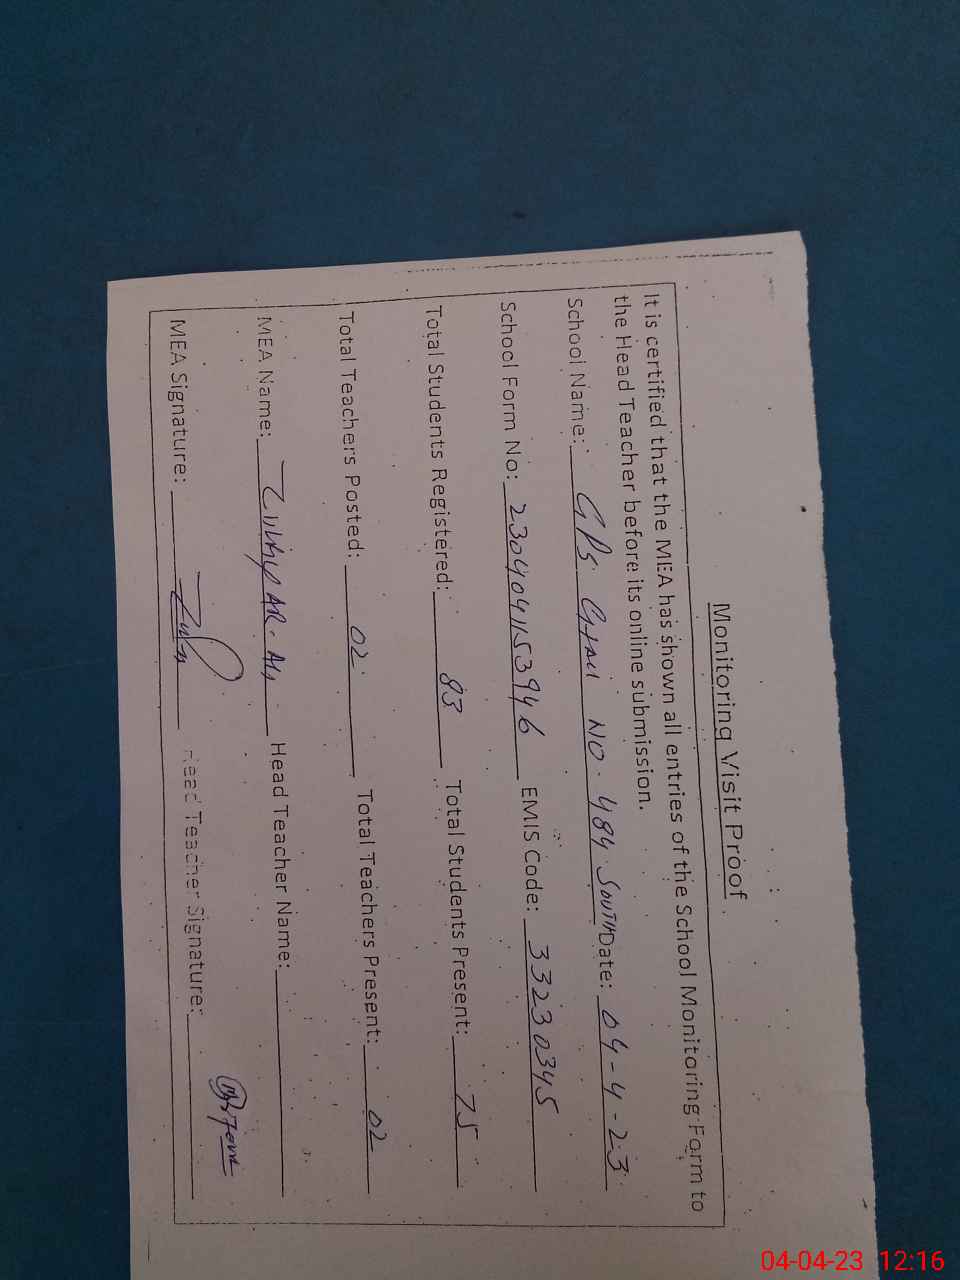 Monitoring Visit Proof
It is certified that the MEA has shown all entries of the School Monitoring Form to
the Head Teacher before its online submission.
School Name: GPS NO. 484 SOUTH Date: 04-4-23
School Form No: 230404153946 EMIS Code: 33230345
Total Students Registered: 83 Total Students Present: 75
Total Teachers Posted: 02 Total Teachers Present: 02
MEA Name: Head Teacher Name:
MEA Signature: Head Teacher Signature:
04-04-23 12:16